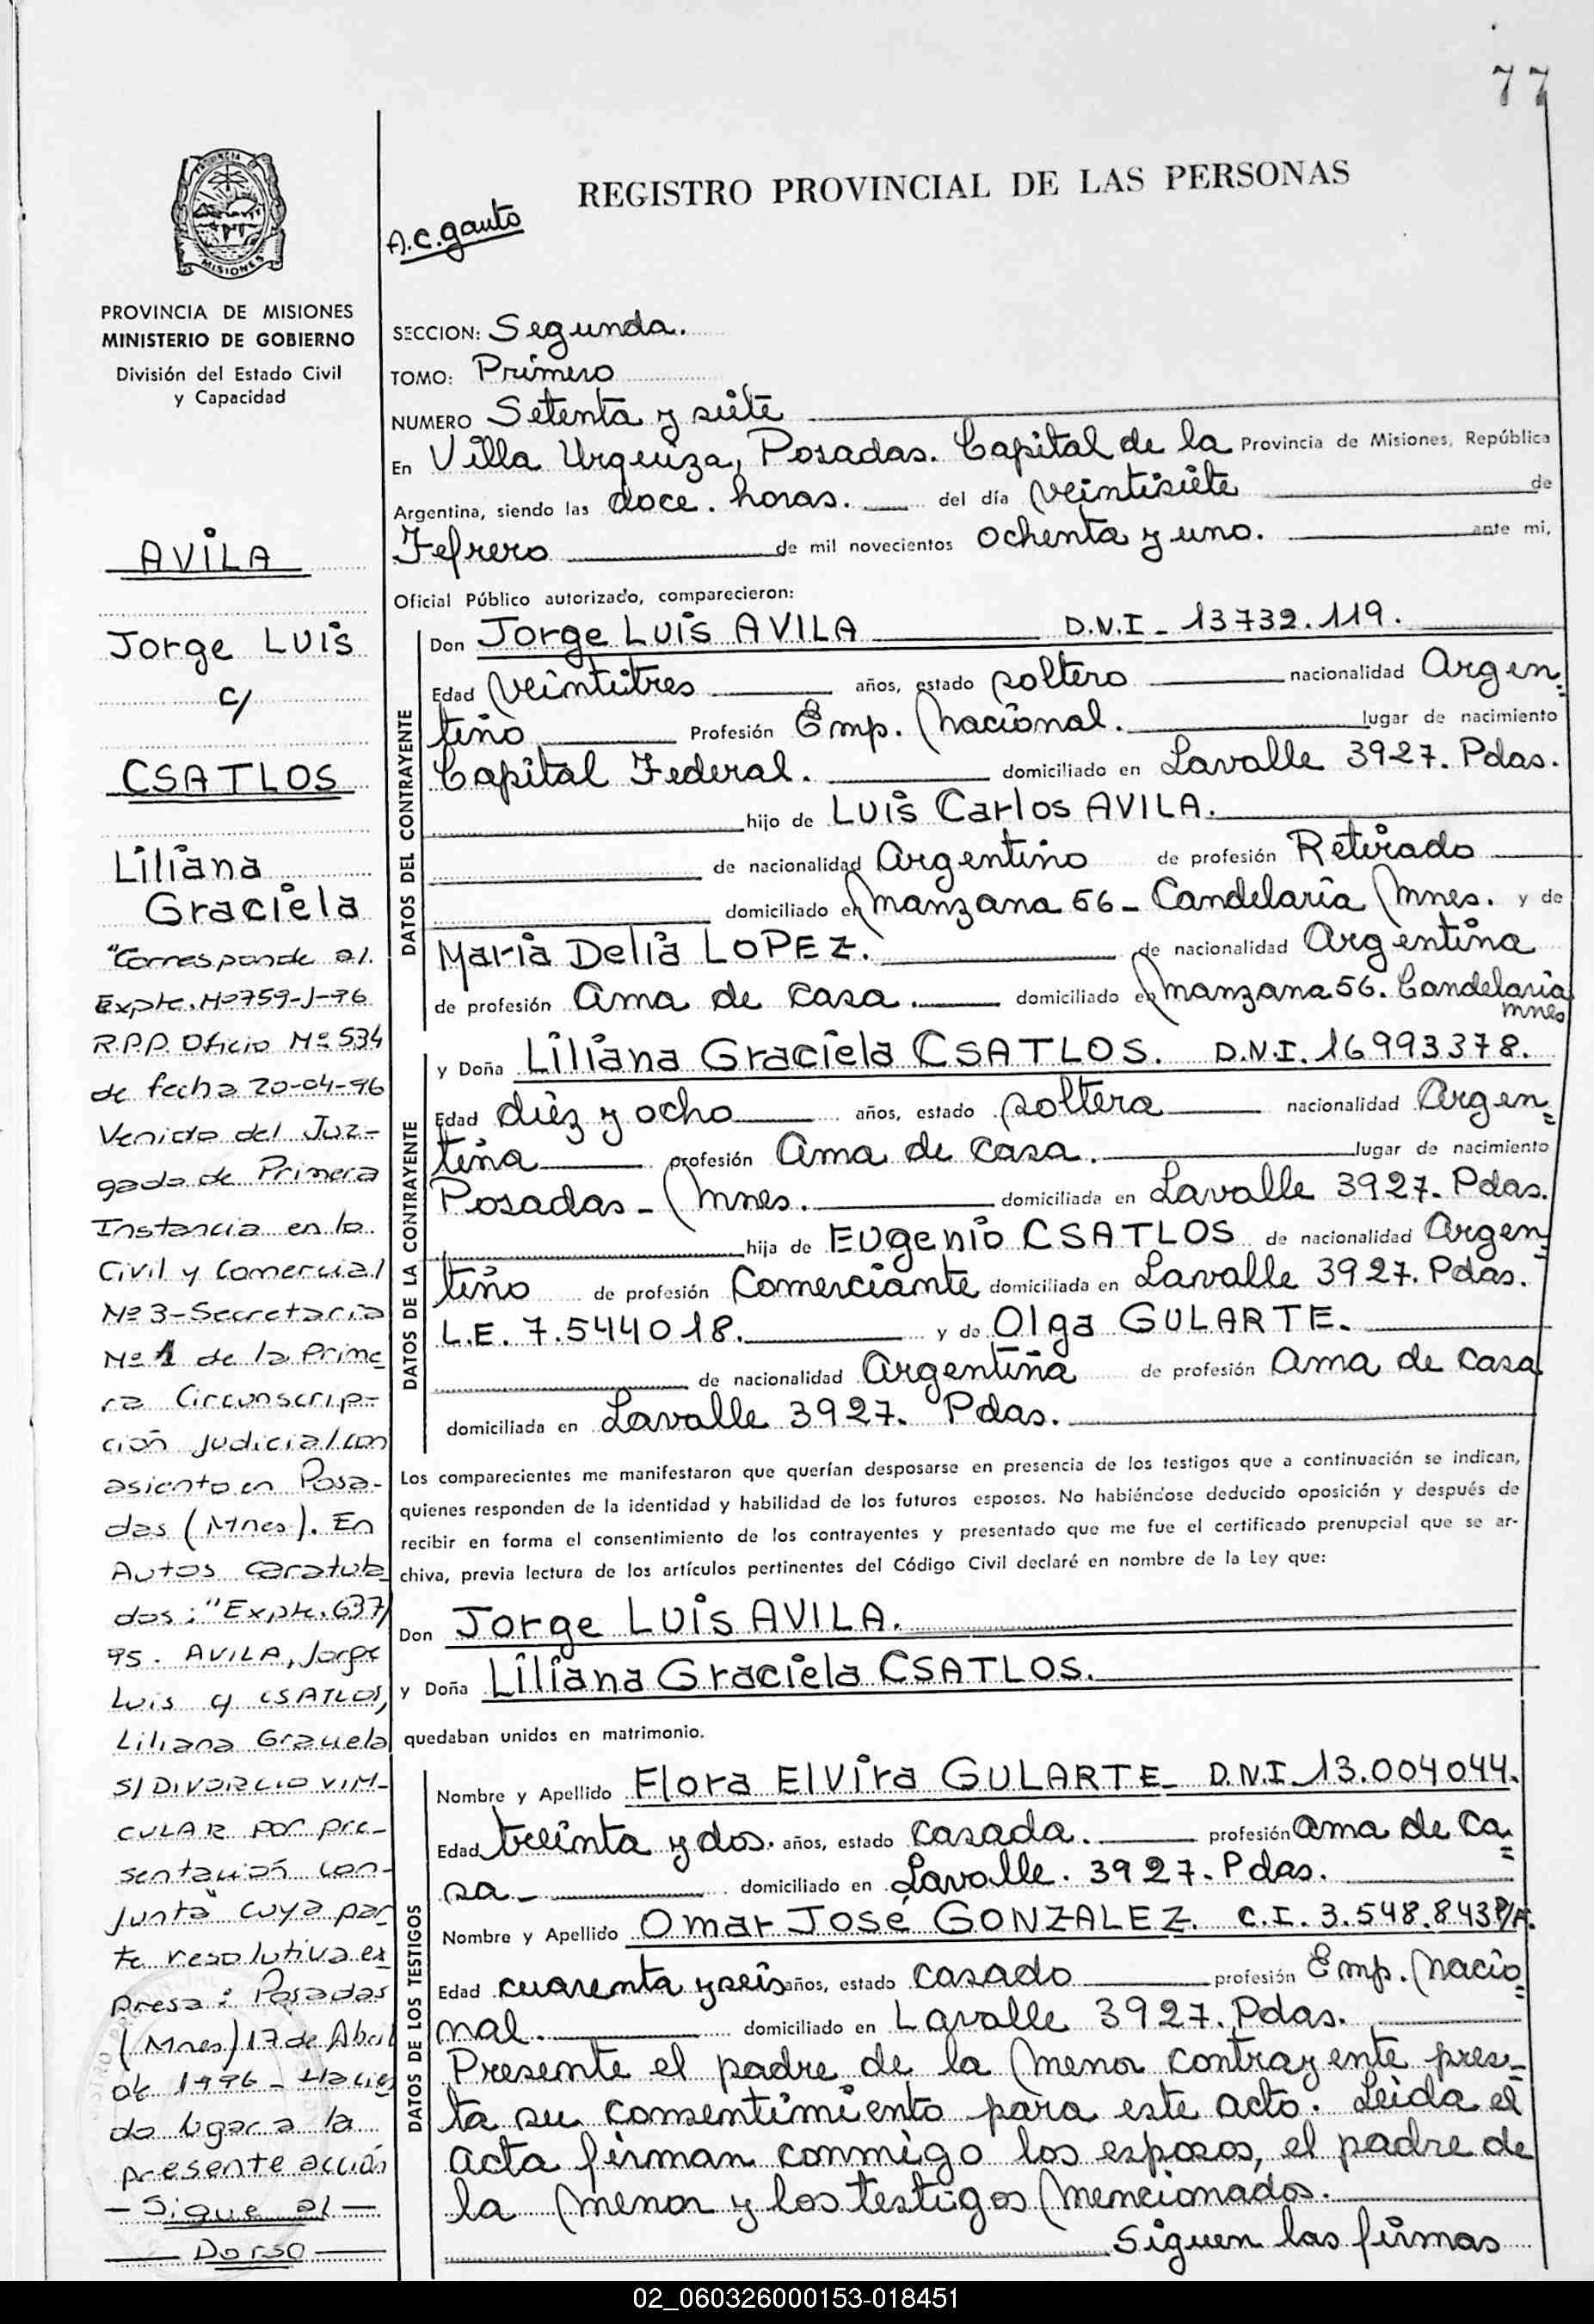 77
PROVINCIA DE
MISIONES
PROVINCIA DE MISIONES
MINISTERIO DE GOBIERNO
División del Estado Civil
y Capacidad
AVILA
Jorge LUIS
c/
CSATLOS
Liliana
Graciela
"Corresponde al
Expte. Nº 759-J-96
R.P.P. Oficio Nº 534
de fecha 20-04-96
Venido del Juz-
gado de Primera
Instancia en lo
Civil y Comercial
Nº 3-Secretaria
Nº 1 de la Prime
ra Circunscrip-
ción judicial con
asiento en Posa-
das (Mnes). En
Autos caratula
dos: "Expte. 637/
95. AVILA, Jorge
Luis y CSATLOS,
Liliana Graciela
S/ DIVORCIO VIN-
CULAR POR pre-
sentación con-
junta" cuya par
te resolutiva ex
presa: Posadas
(Mnes) 17 de Abril
de 1996 - Hacien
do lugar a la
presente acción
- Sigue al -
Dorso
REGISTRO PROVINCIAL DE LAS PERSONAS
A.C. gauto
SECCION: Segunda.
TOMO: Primero
NUMERO Setenta y siete
En Villa Urquiza, Posadas. Capital de la Provincia de Misiones, República
Argentina, siendo las doce. horas. del día veintisiete de
Febrero de mil novecientos ochenta y uno. ante mi,
Oficial Público autorizado, comparecieron:
DATOS DEL CONTRAYENTE
Don Jorge LUIS AVILA D.N.I - 13732.119.
Edad veintitres años, estado soltero nacionalidad Argen=
tino Profesión Emp. Nacional. lugar de nacimiento
Capital Federal. domiciliado en Lavalle 3927. Pdas.
hijo de LUIS Carlos AVILA.
de nacionalidad Argentino de profesión Retirado
domiciliado en Manzana 56 - Candelaria Mnes. y de
Maria Delia LOPEZ. de nacionalidad Argentina
de profesión Ama de casa. domiciliado en Manzana 56. Candelaria
Mnes
DATOS DE LA CONTRAYENTE
y Doña Liliana Graciela CSATLOS. D.N.I. 16993378.
Edad diez y ocho años, estado soltera nacionalidad Argen=
tina profesión Ama de casa. lugar de nacimiento
Posadas - Mnes. domiciliada en Lavalle 3927. Pdas.
hija de EUgenio CSATLOS de nacionalidad Argen=
tino de profesión Comerciante domiciliada en Lavalle 3927. Pdas.
L.E. 7.544018. y de Olga GULARTE.
de nacionalidad Argentina de profesión Ama de casa
domiciliada en Lavalle 3927. Pdas.
Los comparecientes me manifestaron que querían desposarse en presencia de los testigos que a continuación se indican,
quienes responden de la identidad y habilidad de los futuros esposos. No habiéndose deducido oposición y después de
recibir en forma el consentimiento de los contrayentes y presentado que me fue el certificado prenupcial que se ar-
chiva, previa lectura de los artículos pertinentes del Código Civil declaré en nombre de la Ley que:
Don Jorge LUIS AVILA.
y Doña Liliana Graciela CSATLOS.
quedaban unidos en matrimonio.
DATOS DE LOS TESTIGOS
Nombre y Apellido Flora Elvira GULARTE - D.N.I - 13.004044.
Edad treinta y dos. años, estado casada. profesión ama de ca=
sa - domiciliado en Lavalle. 3927. Pdas.
Nombre y Apellido Omar José GONZALEZ. C.I. 3.548.843 P/F.
Edad cuarenta y seis años, estado casado profesión Emp. Nacio=
nal. domiciliado en Lavalle 3927. Pdas.
Presente el padre de la menor contrayente pres-
ta su consentimiento para este acto. Leida el
acta firman conmigo los esposos, el padre de
la menor y los testigos mencionados.
Siguen las firmas
02_060326000153-018451